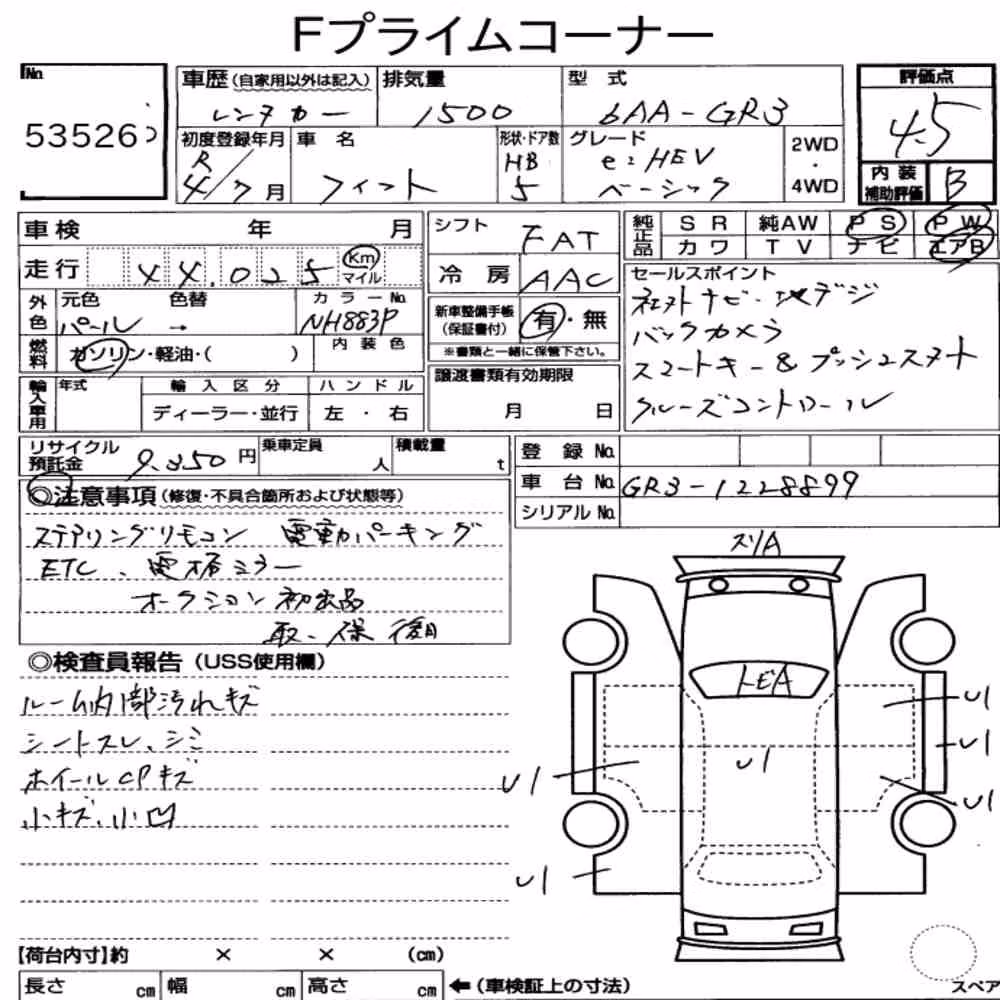 Fプライムコーナー
No.
53526
車歴(自家用以外は記入) 排気量 型式 評価点
レンタカー 1500 6AA-GR3 4.5
初度登録年月 車名 形状・ドア数 グレード 2WD・4WD
R4/7月 フィット HB 5 e:HEV ベーシック
内装補助評価 B
車検 年 月
シフト FAT
純正品 SR 純AW PS PW
カワ TV ナビ エアB
走行 44,025 Km マイル
冷房 AAC
セールスポイント
社外ナビ・地デジ
バックカメラ
スマートキー&プッシュスタート
クルーズコントロール
外色 元色 色替 カラーNo.
パール → NH883P
新車整備手帳(保証書付) 有・無
※書類と一緒に保管下さい。
燃料 ガソリン・軽油・( ) 内装色
輸入車用 年式 輸入区分 ハンドル
ディーラー・並行 左・右
譲渡書類有効期限
月 日
リサイクル預託金 9,350円 乗車定員 人 積載量 t
登録No.
車台No. GR3-1228899
シリアルNo.
◎注意事項(修復・不具合箇所および状態等)
ステアリングリモコン 電動パーキング
ETC、電格ミラー
オークション初出品
取、保 復有
◎検査員報告(USS使用欄)
ルーム内部汚れキズ
シートスレ、シミ
ホイールCPキズ
小キズ、小凹
スリA
トビA
U1
U1
U1
U1
U1
U1
【荷台内寸】約 × × (cm)
長さ cm 幅 cm 高さ cm ←(車検証上の寸法)
スペア